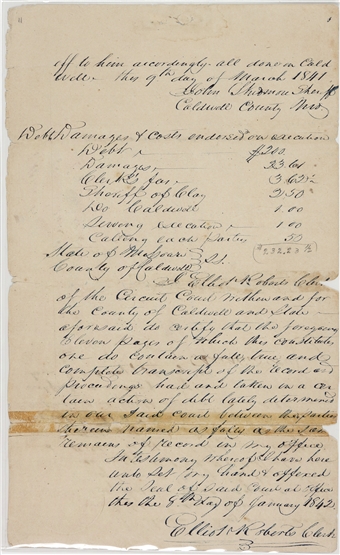 off to him accordingly all done in Cald
well this 9th day of March 1841
John Skidmore Sheriff
Caldwell County Mo
Debt Damages & Costs endorsed on execution
Debt $200
Damages 23.61
Clerks fees 3.62½
Sheriff of Clay 2.50
Do Caldwell 1.00
Serving execution 1.00
Calling each parties 50
$232.23½
State of Missouri
County of Caldwell } Ss.
I Elliott Roberts Clerk
of the Circuit Court within and for
the County of Caldwell and State
aforesaid do certify that the foregoing
Eleven pages of which this constitutes
one do contain a full, true, and
complete transcript of the record and
Proceedings had and taken in a cer
tain action of debt lately determined
in our said Court between the parties
therein named as fully as the same
remains of record in my office
In Testimony Whereof I have here
unto Set my hand & affixed
the Seal of said Court at office
this the 8th Day of January 1842
Elliott Roberts Clerk